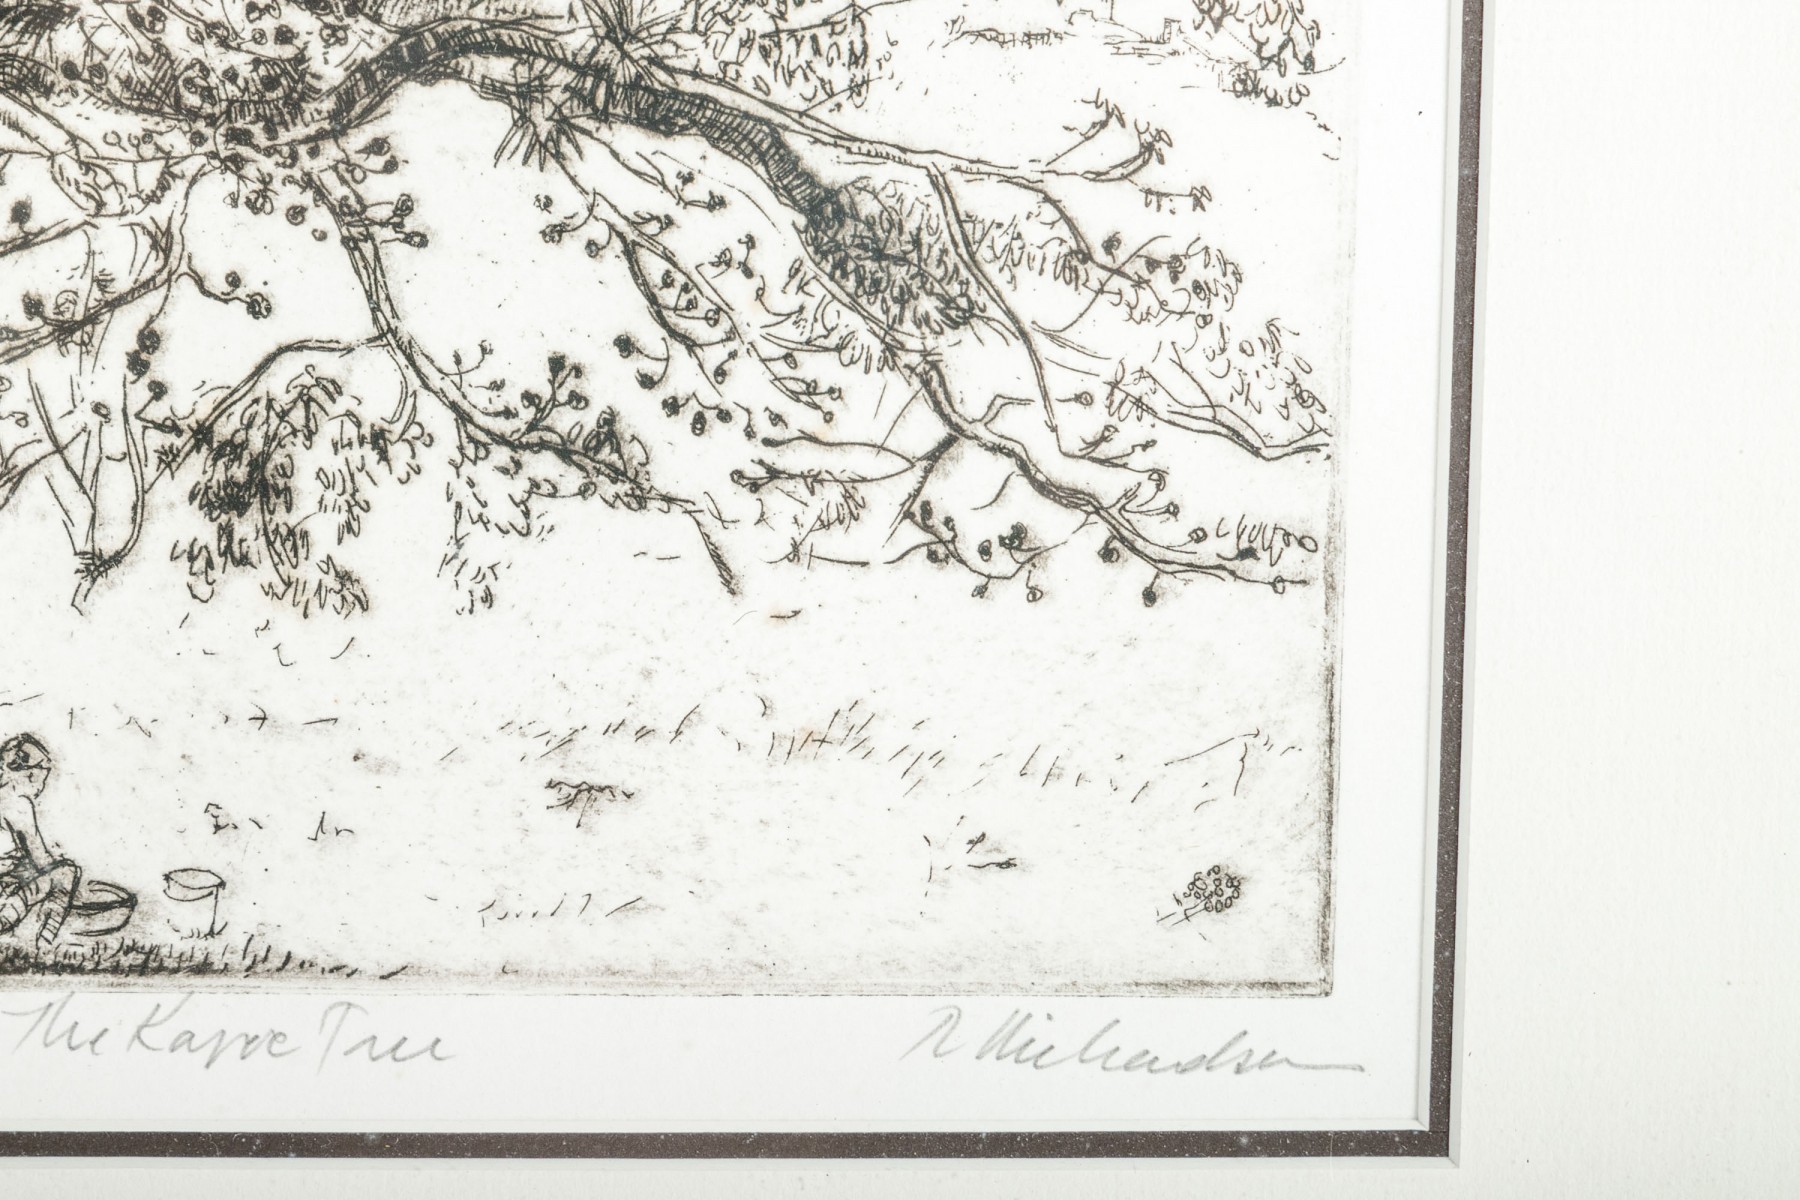 The Kapoc Tree
R Richardson